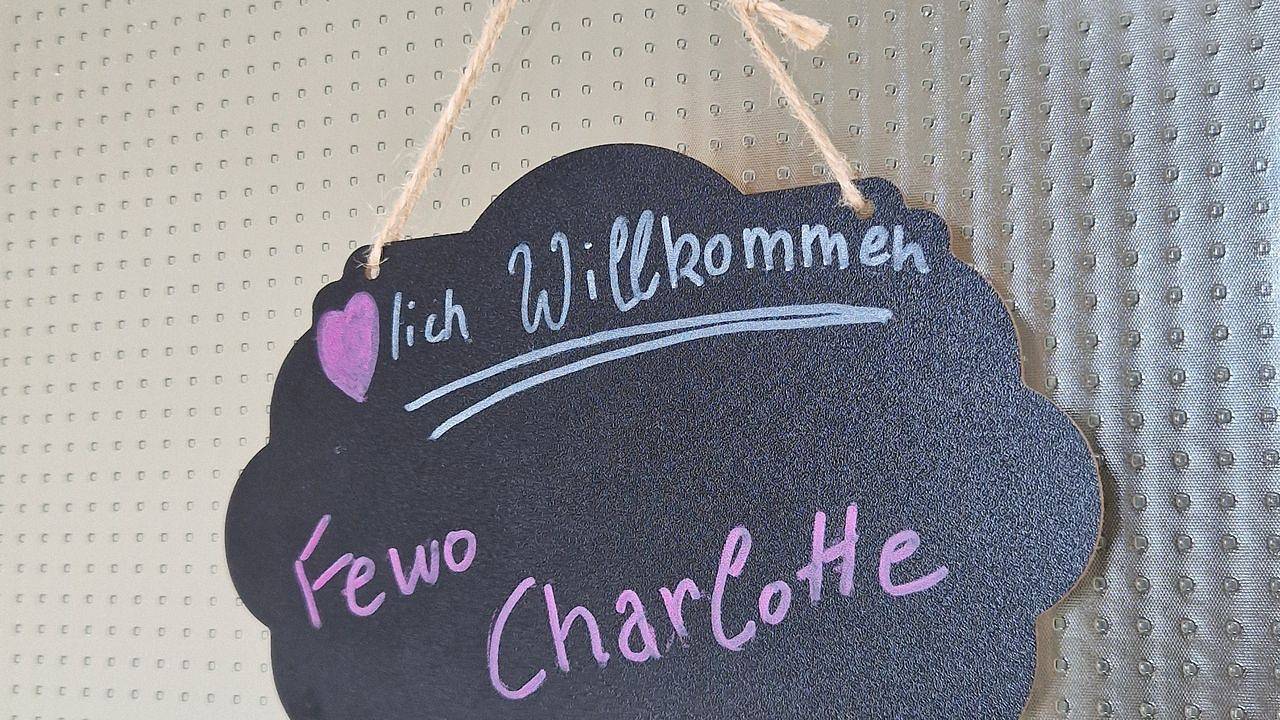 ♥lich Willkommen
Fewo
Charlotte